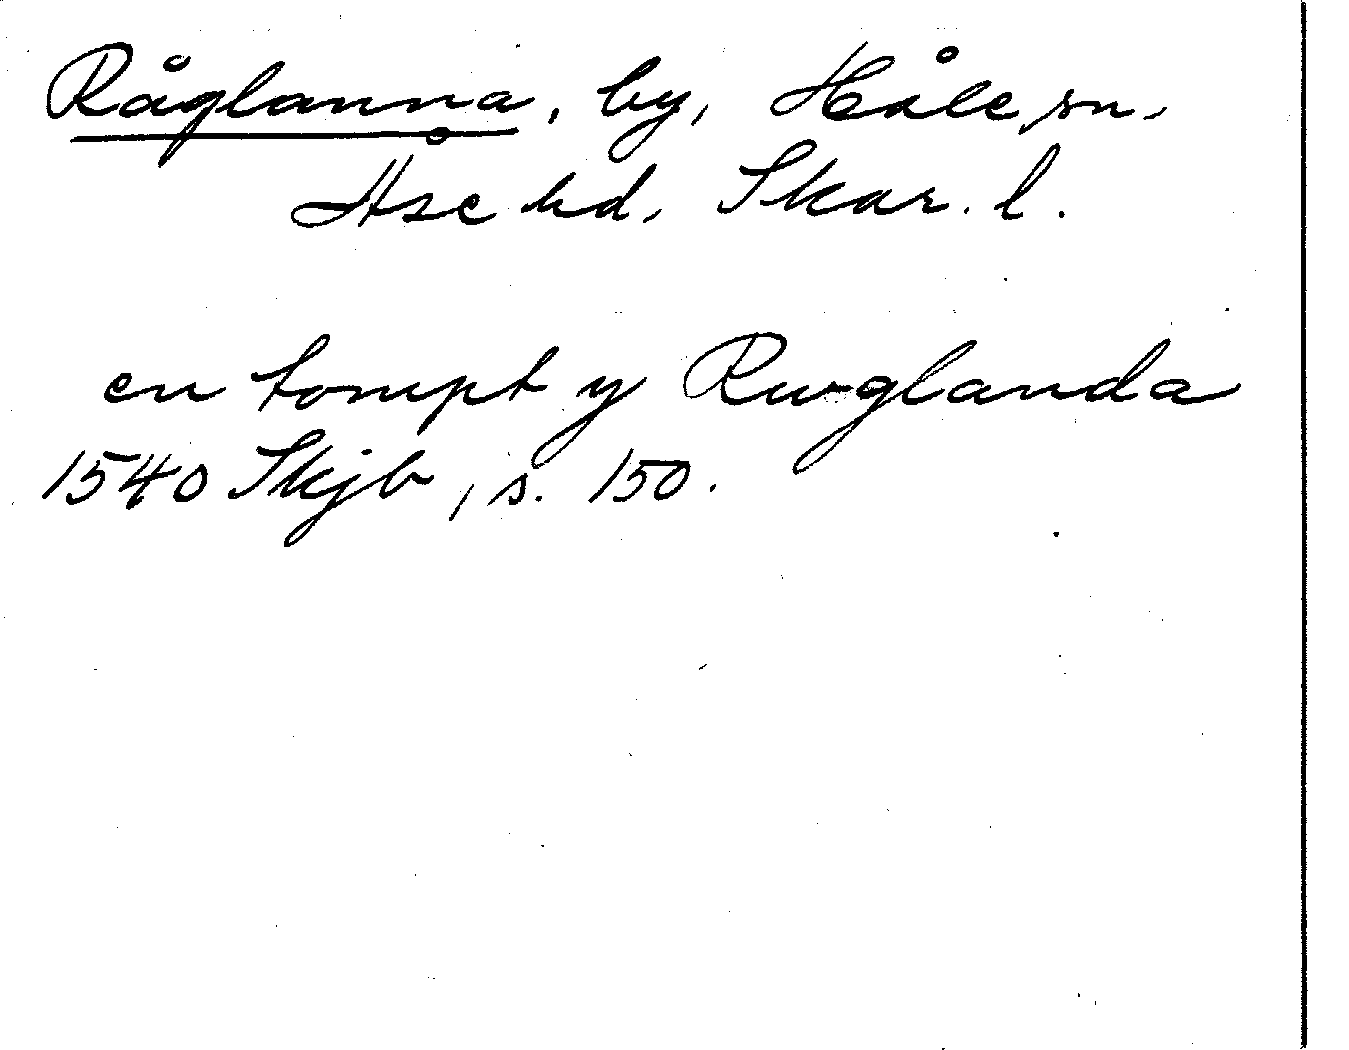 Råglanna, by, Håle sn.
Åse hd, Skar. l.
en tompt y Rwglanda
1540 Skjb, s. 150.